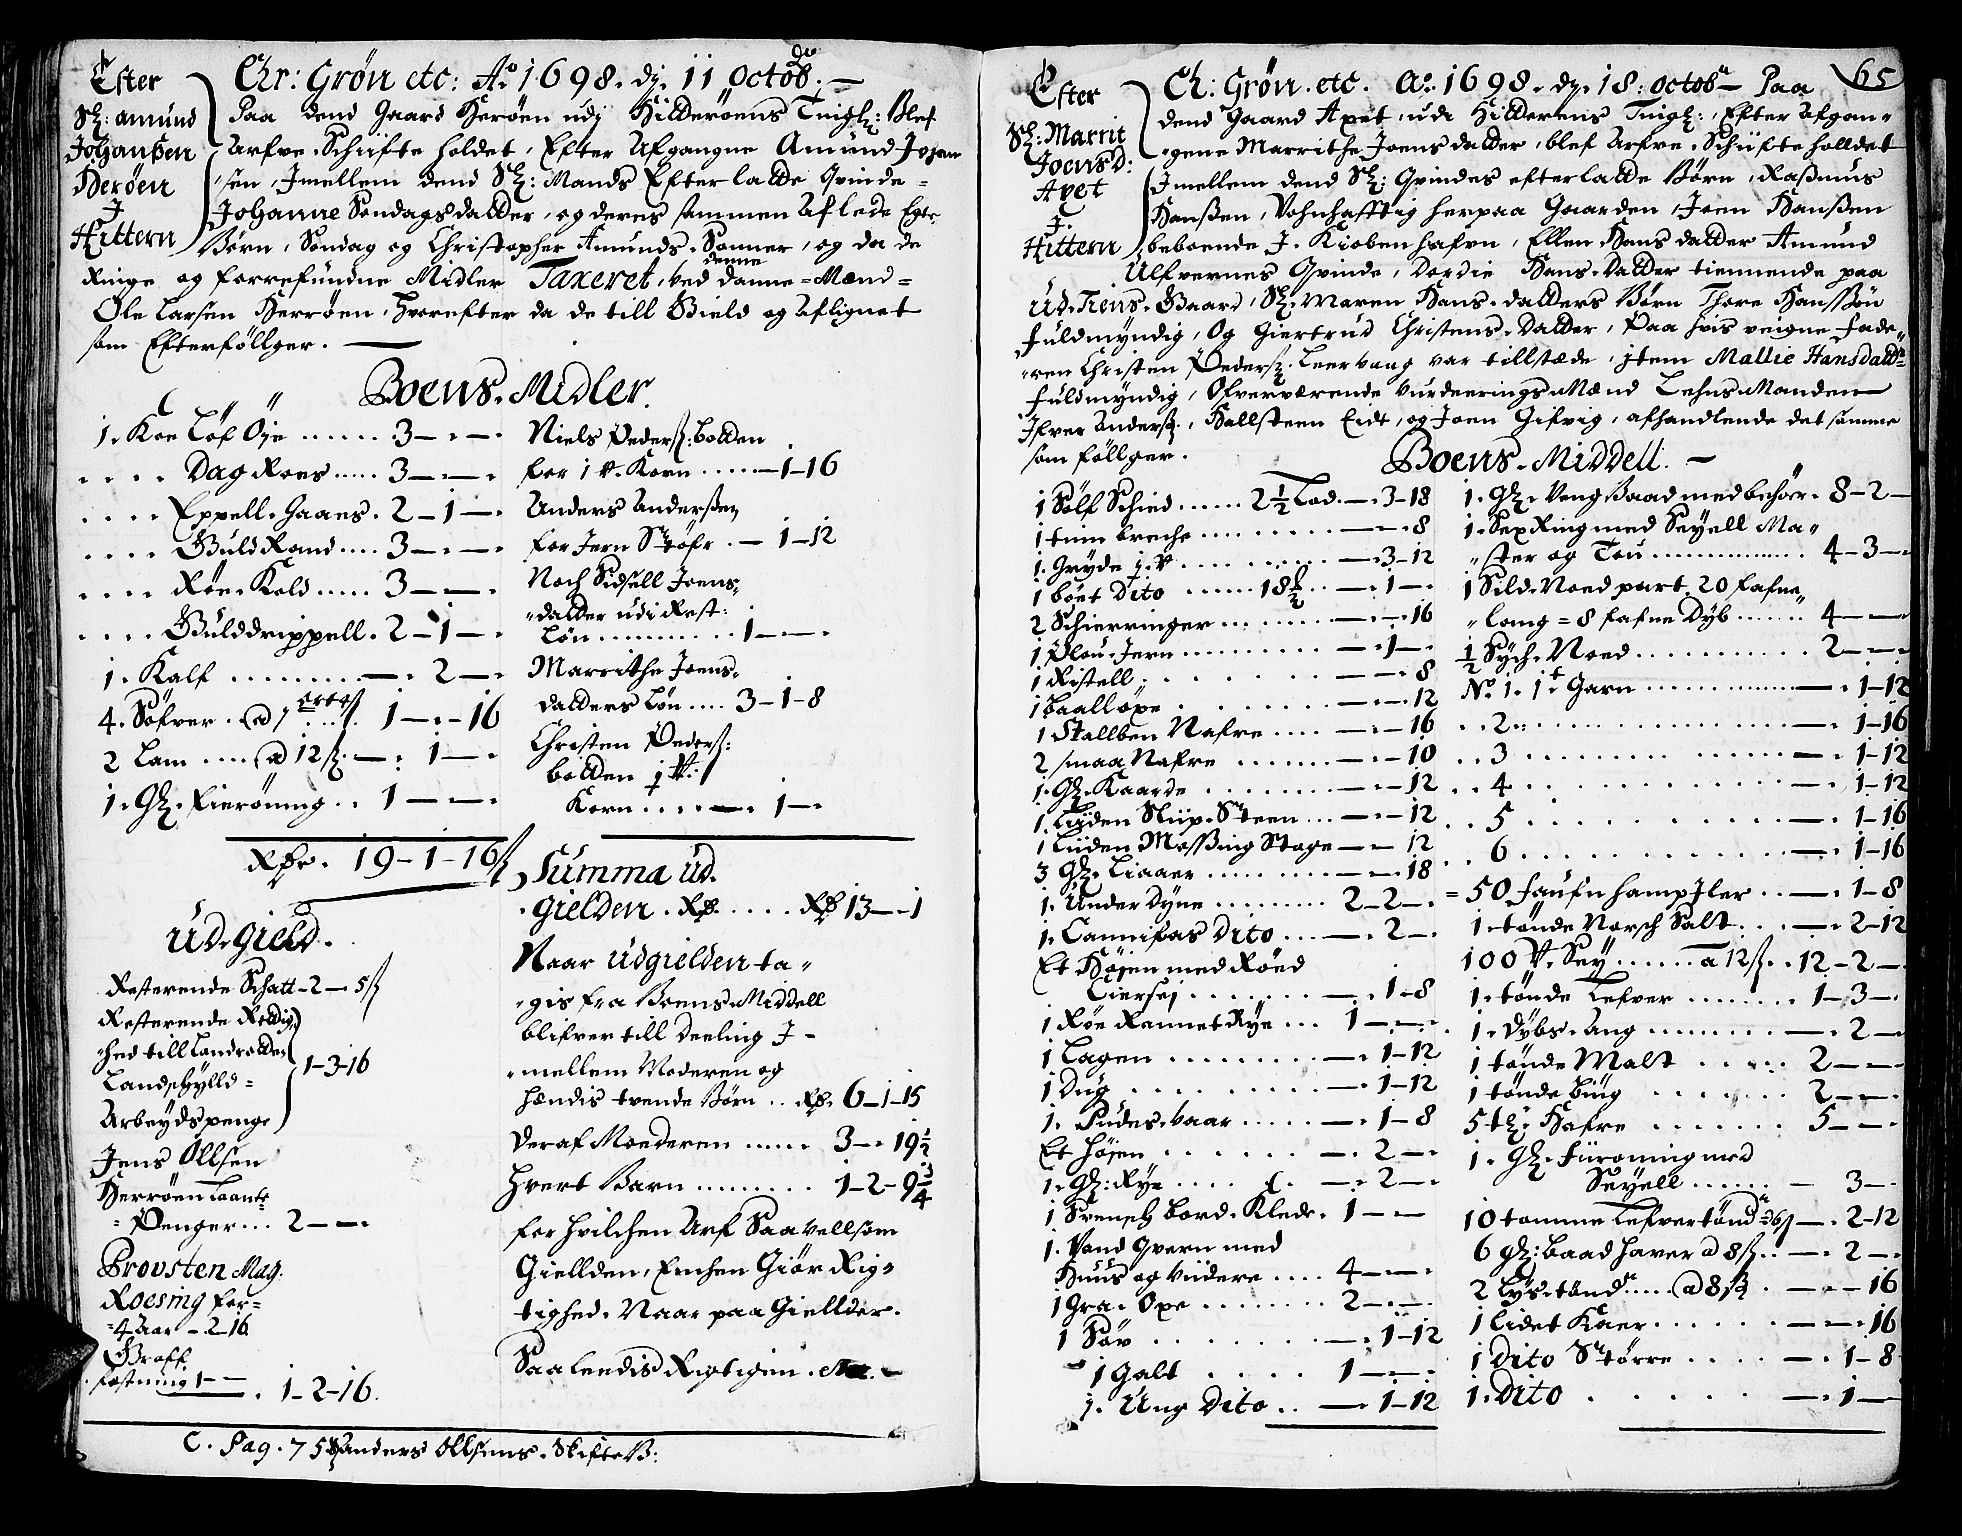 Efter
Sl: Amund
Johanßen
Herøen
J
Hittern
Chr: Grøn etc: Ao 1698. dj. 11 Octob:
Paa dend Gaard Herøen udj Hilderøens Tinglg: Blef
Arfve-Schiifte holdet, Efter Afgangne Amund Johan
sen, Jmellem dend Sl: Mands Efterlatte Qvinde
Johanne Søndagsdatter, og deris sammen Aflede Egte
Børn, Søndag og Christopher Amunds-Sønner, og da de
Ringe og forrefundne Midler Taxeret, ved denne Danne-Mænd
Ole Larsen Herrøen, hvorefter da de till Gield og Aflignet
som Efterføllger.
Boens-Midler.
1. Koe Løf Øje ...... 3 — . —.
. . . . Dag Roes ..... 3 — . —.
. . . . Eppell-Gaaes. 2 — 1 —.
. . . . Guld Rand .... 3 — . —.
. . . . Røe-Kold ..... 3 — . —.
. . . . Gulddrippell. 2 — 1 —.
1. Kalf ......... — . 2 — .
4. Søfver . @ 1 ort 1 — . — 16
2 Lam .... @ 12 ß. — . 1 — .
1. Gl. Fierøning .. 1 — . —.
Rdr. 19 - 1 - 16 ß
Niels Pederß: bolden
for 1 V. Korn ..... — 1 - 16
Anders Anderßen
for Jern Støfr . — 1 - 12
Noch Sidsell Joens
datter udi Rest:
Løn ........... 1 — . —.
Marrithe Joens-
datters Løn .... 3 - 1 - 8
Christen Pederß:
bolden 1 V:
Korn .... — . 1 — .
Ud-Gield.
Resterende Schatt - 2 — 5 ß
Resterende Rettig
hed till Landrotten
Landhylld =
Arbeydspenge
1 - 3 - 16
Jens Ollsen
Herrøen Laante
Penger ... 2 — . —.
Provsten Mag.
Roesing for
4 Aar - 2 - 16
Graff
fæstning 1 — —
. 1 - 2 - 16.
Summa ud.
gielden. Rdr. .... Rd 13 — . - 1
Naar udgielden ta
gis fra Boens-Middell
blifver till Deeling J
mellem Moderen og
hendis tvende Børn .. Rd. 6 - 1 - 15
Deraf Moederen ...... 3 — . 19 1/2
Hvert Barn ........ 1 - 2 - 9 3/4
for hvilchen Arf Saavellsom
Giellden, Enchen Giør Rig
tighed. Naar paa Giellder.
Saaledis Rigtigen.
C. Pag. 75 Anders Ollsens-Skifte B:
65
Efter
Sl: Marrit
Joensd:
Axet
J.
Hittern
Ch: Grøn. etc. Ao. 1698. dj. 18. octob — Paa
dend Gaard Axet, udi Hilderens Tinglg:, Efter Afgan
gene Marrithe Joensdatter, blef Arfve-Schiifte holldet
Jmellem dend Sl: Qvindes efterlatte Børn, Raßmus
Hanßen, Vohnhafftig herpaa Gaarden, Joen Hanßen
beboende J. Kiøbenhafvn, Ellen Hansdatter Amund
Ulfvernes Qvinde, Dordie Hans-datter tiennende paa
Ud-Tiens-Gaard, Sl: Maren Hans-datters Børn Thore Hanßøn
fuldmyndig, Og Giertrud Christens-datter, Paa hvis veigne fade
ren Christen Pederß. Leervaag var tillstæde, jtem Mallie Hansdatt
fuldmyndig, Ofververærende vurdeeringsMænd LehnsManden
Jfver Anderß., Hallsteen Eidt, og Joen Gifvig, afhandlende det samme
som føllger.
Boens-Middell.
1 Sølf Schied ...... 2 1/2 Lod. — . 3 - 18
1 tinn breche ......... — . — . 8
1. Gryde 1. V ......... — . 3 - 12
1 boet Dito ...... 18 ß/2 .. — . 1 — .
2 Schierringer ....... — . — . 16
1 Plou-Jern ......... — . 1 — .
1 Ristell . . . . . . . — . — . 8
1 Baalløxe . . . . . . — . — . 12
1 Stallben Nafre .... — . — 16
2 smaa Nafre ....... — . — 10
1. Gl. Kaarde ........ — . — 12
1. Liiden Sliip-Steen ... — . — 12
1 Liiden Meßing Stage — . — 12
3 Gl. Liaaer ........ — . — . 18
1. Under Dyne ........ 2 - 2 — .
1. Cannifas Dito ... — . 2 — .
Et Højen med Røed
Lierfej ......... — . 1 - 8
1 Røe Rannet Rye ... 1 — . — .
1 Lagen .......... — . 1 - 12
1 Dug . . . . . . . . — . 1 - 12
1. Pudes-vaar ...... — . 1 - 8
Et Højen . . . . . . — . 2 — .
1. Gl: Rye ..... — . 2 — .
1 Svensch bord-Klede. 1 — . —
1. Vand Qvern med
Huus og Viidere .... 4 — . — .
1 Gra-Oxe ........ 2 — . — .
1 Søv . . . . . . . — . 1 - 12
1 Galt . . . . . 1 — . — .
1. Ung Dito ... — . 1 - 12
1. Gl. Veng Baad med behør. 8 - 2 —
1. Sex Ring med Seyell Ma
ster og Tou .............. 4 - 3 — .
1 Sild-Noed part. 20 fafne
lang = 8 fafne Dyb ....... 4 — . —
1/2 Sych-Noed ........... 2 — . —
No. 1. 1t Garn ............. — . 1 - 12
. . 2 .................. — . 1 - 16
. . 3 ................. — . 1 - 12
. . 4 ................. — . 1 - 12
. . 5 ................. — . 1 - 16
. . 6 ................. — . 1 - 16
50 faufn hamp Jler ... — . 1 - 8
1. tønde Norsch Salt .. — . 2 - 12
100 V. Sey ...... a 12 ß. . 12 - 2 — .
1. tønde Lefver ........ 1 - 3 — .
1. Dybs-Ang ......... — . 2 — .
1 tønde Malt ..... 2 — . —
1 tønde Biug ....... 2 — . — .
5 tl: Hafre ....... 5 — . — .
1. Gl. Fiiroming med
Seyell ...... — 3 — .
10 tomme Lefvertønd a 6 ß — . 2 - 12
6 gl: baad haver a 8 ß. . — . 2 — .
2 Lys-tønd ..... @ 8 ß . — . — 16
1 lidet Kaer ...... — . — . 16
1 Dito Større .... — . 1 - 8
1. Dito . . . . . . — . 1 — .